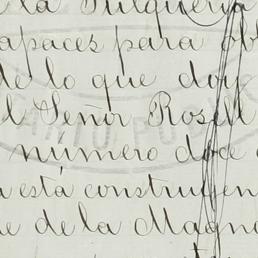 de la Pulquería
capaces para ob
de lo que doy
el Señor Rosell
número doce
está construyen
de la Magn